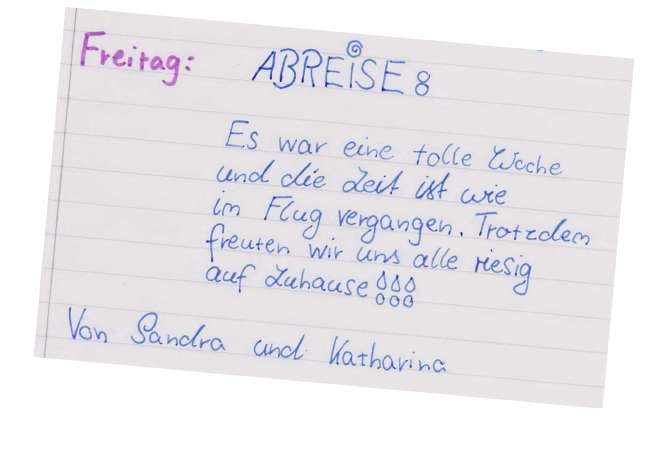 Freitag: ABREISE!
Es war eine tolle Woche
und die Zeit ist wie
im Flug vergangen. Trotzdem
freuten wir uns alle riesig
auf Zuhause!!!
Von Sandra und Katharina